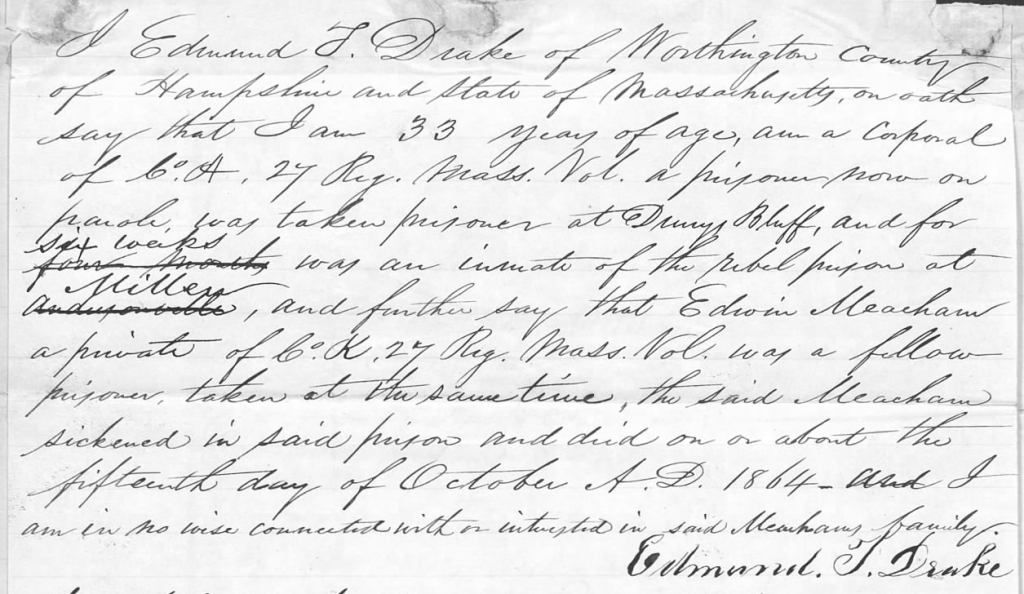 I Edmund T. Drake of Worthington County
of Hampshire and State of Massachusetts, on oath
say that I am 33 years of age, am a Corporal
of Co. A, 27 Reg. Mass. Vol. a prisoner now on
parole, was taken prisoner at Drurys Bluff, and for
six weeks
four months was an inmate of the rebel prison at
Millen
andersonville, and further say that Edwin Meacham
a private of Co. K, 27 Reg. Mass. Vol. was a fellow
prisoner, taken at the same time, the said Meacham
sickened in said prison and died on or about the
fifteenth day of October A.D. 1864 - and I
am in no wise connected with or interested in said Meachams family.
Edmund. T. Drake